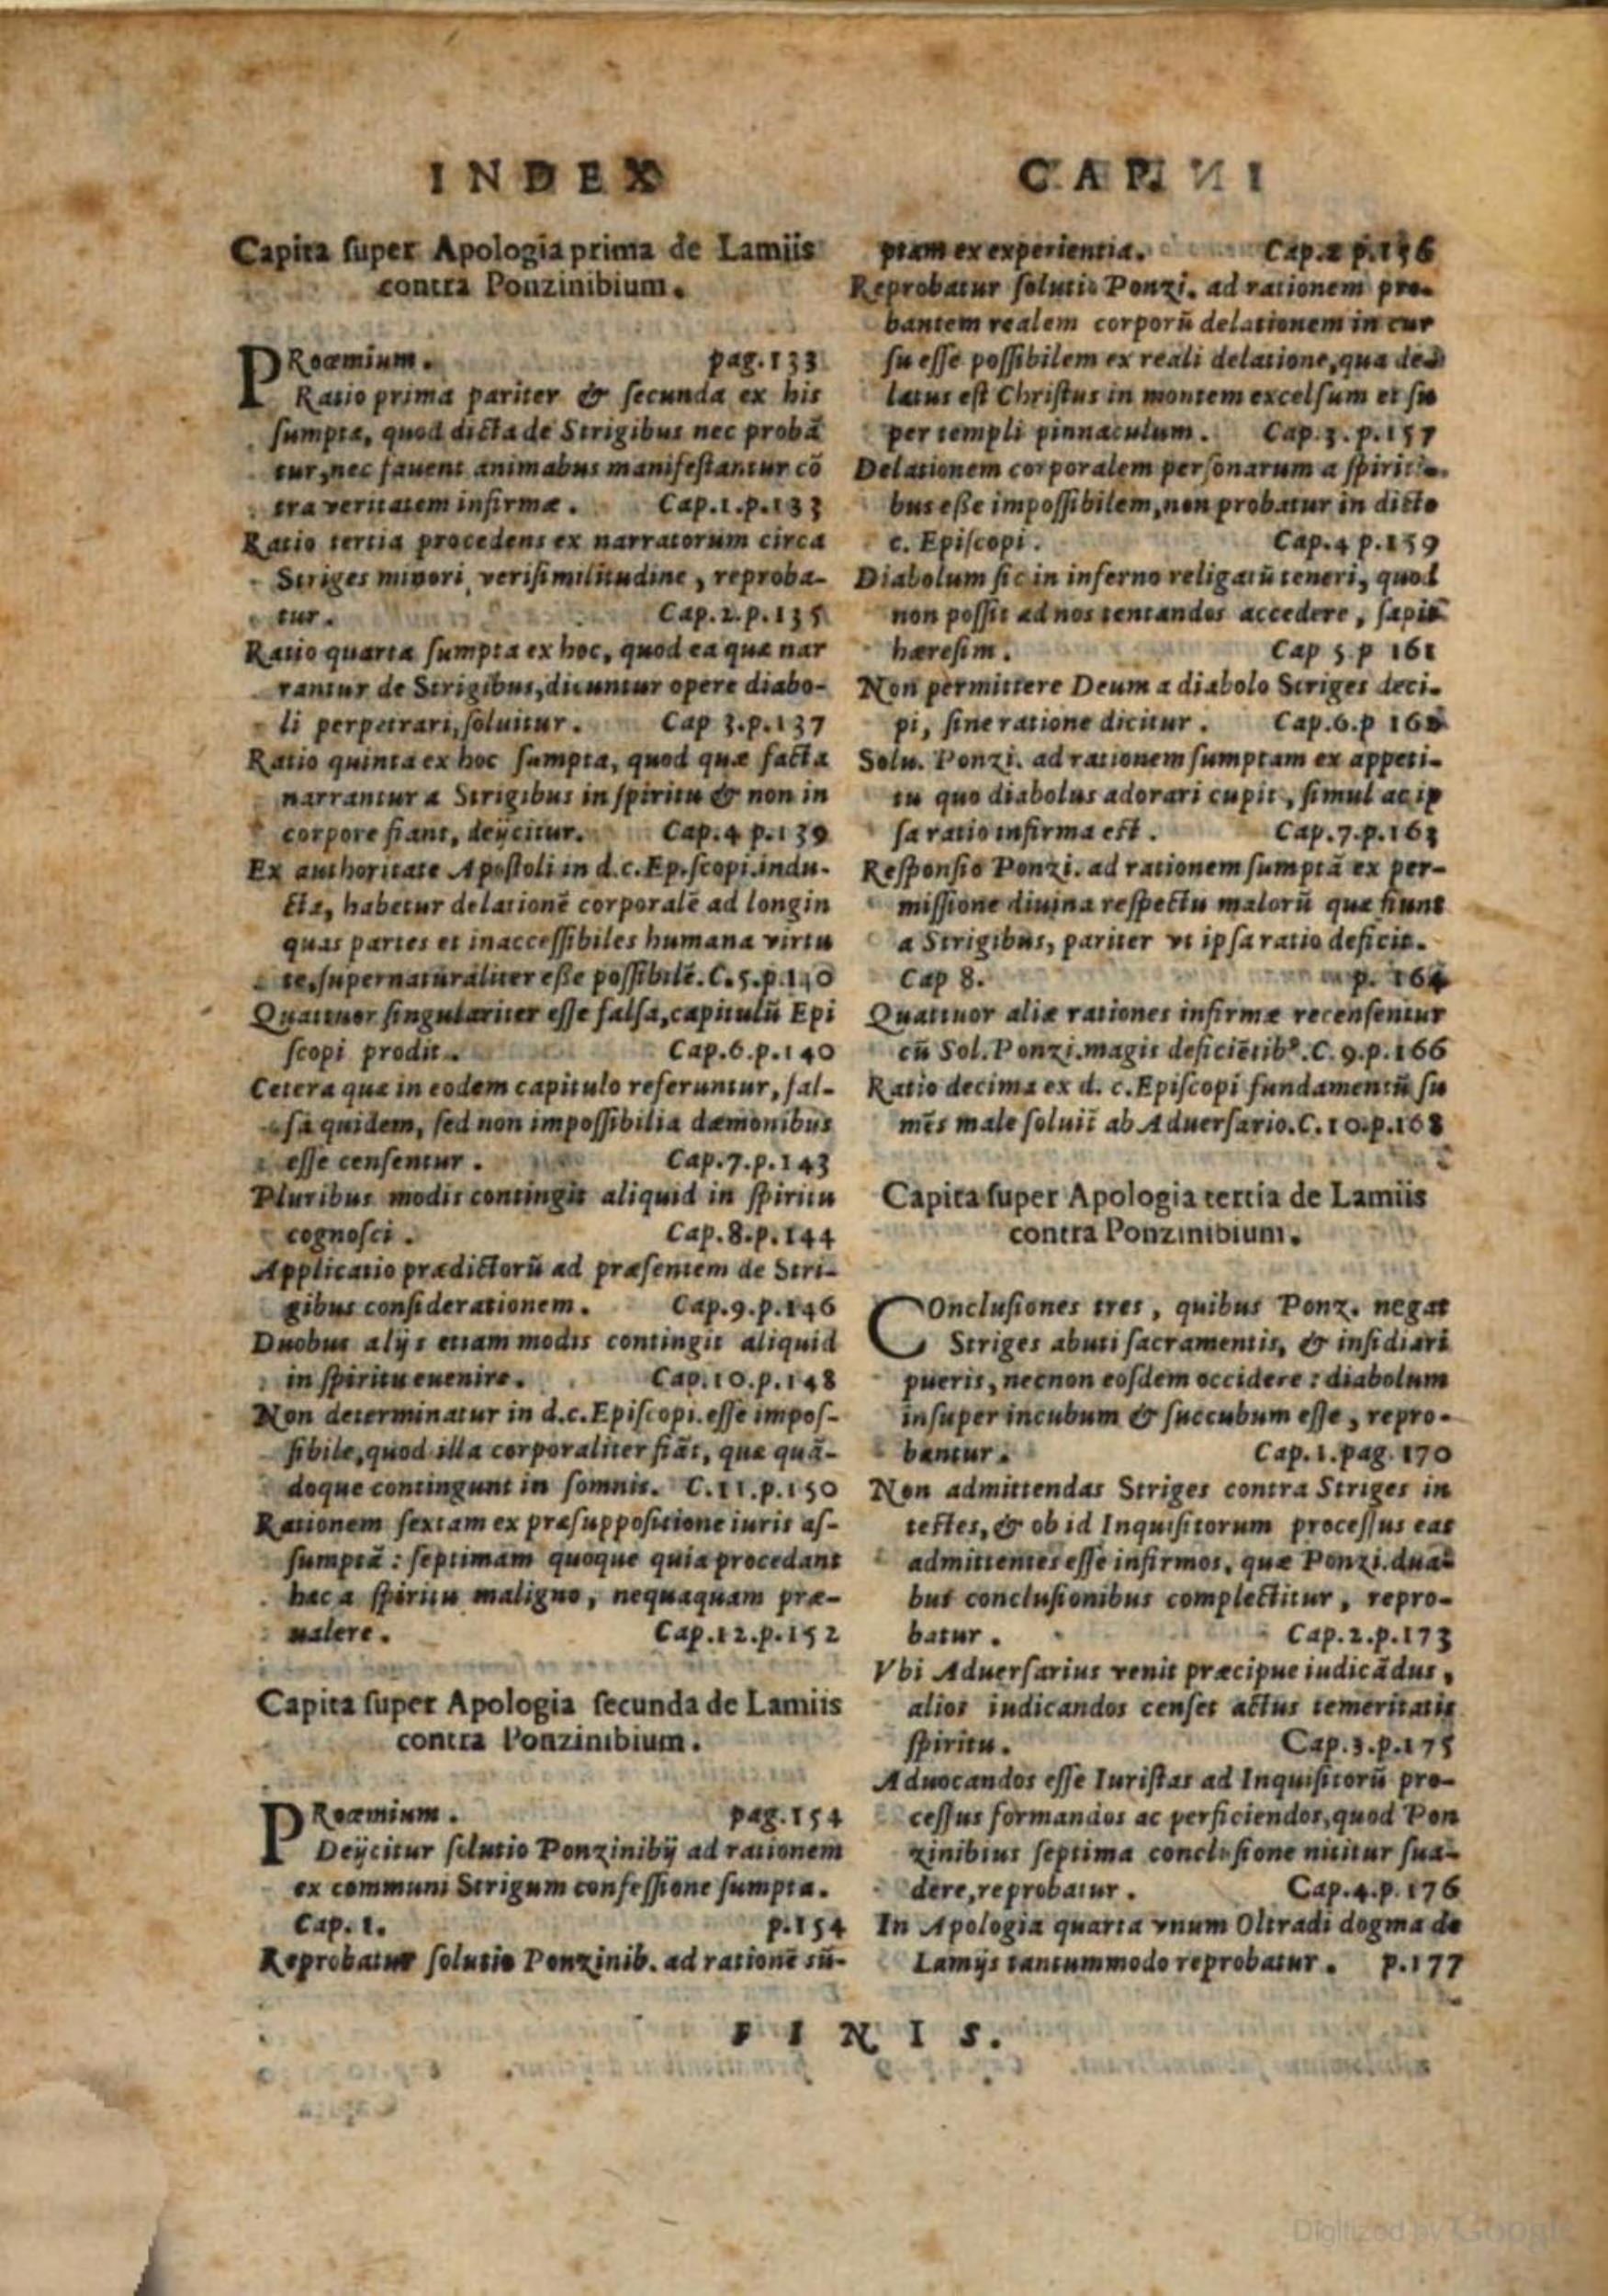 INDEX CAP.
Capita ſuper Apologia prima de Lamiis
contra Ponzinibium.
PRoœmium. pag.133
Ratio prima pariter & ſecunda ex his
ſumpta, quod dicta de Strigibus nec probā
tur, nec fauent animabus manifeſtantur cō
tra veritatem infirmæ. Cap.1.p.133
Ratio tertia procedens ex narratorum circa
Striges minori veriſimilitudine, reproba-
tur. Cap.2.p.135
Ratio quarta ſumpta ex hoc, quod ea quæ nar
rantur de Strigibus, dicuntur opere diabo-
li perpetrari, ſoluitur. Cap 3.p.137
Ratio quinta ex hoc ſumpta, quod quæ facta
narrantur a Strigibus in ſpiritu & non in
corpore fiant, deijcitur. Cap.4 p.139
Ex authoritate Apoſtoli in d.c.Epiſcopi.indu-
cta, habetur delationē corporalē ad longin
quas partes et inacceſſibiles humana virtu
te, ſupernaturaliter eſſe poſſibilē. C.5.p.140
Quattuor ſingulariter eſſe falſa, capitulū Epi
ſcopi prodit. Cap.6.p.140
Cetera quæ in eodem capitulo referuntur, fal-
ſa quidem, ſed non impoſſibilia dæmonibus
eſſe cenſentur. Cap.7.p.143
Pluribus modis contingit aliquid in ſpiritu
cognoſci. Cap.8.p.144
Applicatio prædictorū ad præſentem de Stri-
gibus conſiderationem. Cap.9.p.146
Duobus alijs etiam modis contingit aliquid
in ſpiritu euenire. Cap.10.p.148
Non determinatur in d.c.Epiſcopi.eſſe impoſ-
ſibile, quod illa corporaliter fiāt, quæ quā-
doque contingunt in ſomnis. C.11.p.150
Rationem ſextam ex præſuppoſitione iuris aſ-
ſumptā: ſeptimam quoque quia procedant
hæc a ſpiritu maligno, nequaquam præ-
ualere. Cap.12.p.152
Capita ſuper Apologia ſecunda de Lamiis
contra Ponzinibium.
PRoœmium. pag.154
Deijcitur ſolutio Ponzinibij ad rationem
ex communi Strigum confeſſione ſumpta.
Cap. 1. p.154
Reprobatur ſolutio Ponzinib. ad rationē sū-
ptam ex experientia. Cap.2 p.156
Reprobatur ſolutio Ponzi. ad rationem pro-
bantem realem corporū delationem in cur
ſu eſſe poſſibilem ex reali delatione, qua de-
latus eſt Chriſtus in montem excelſum et ſu
per templi pinnaculum. Cap.3.p.157
Delationem corporalem perſonarum a ſpiriti-
bus eſſe impoſſibilem, non probatur in dicto
c. Epiſcopi. Cap.4 p.159
Diabolum ſic in inferno religatū teneri, quod
non poſſit ad nos tentandos accedere, ſapit
hæreſim. Cap 5.p 161
Non permittere Deum a diabolo Striges deci-
pi, ſine ratione dicitur. Cap.6.p 162
Solu. Ponzi. ad rationem ſumptam ex appeti-
tu quo diabolus adorari cupit, ſimul ac ip
ſa ratio infirma eſt. Cap.7.p.163
Reſponſio Ponzi. ad rationem ſumptā ex per-
miſſione diuina reſpectu malorū quæ fiunt
a Strigibus, pariter vt ipſa ratio deficit.
Cap 8. p. 164
Quattuor aliæ rationes infirmæ recenſentur
cū Sol. Ponzi.magis deficiētibꝰ. C. 9.p.166
Ratio decima ex d. c.Epiſcopi fundamentū ſu
mēs male ſoluit̄ ab Aduerſario.C.10.p.168
Capita ſuper Apologia tertia de Lamiis
contra Ponzinibium.
COncluſiones tres, quibus Ponz. negat
Striges abuti ſacramentis, & inſidiari
pueris, necnon eoſdem occidere: diabolum
inſuper incubum & ſuccubum eſſe, repro-
bantur. Cap.1.pag.170
Non admittendas Striges contra Striges in
teſtes, & ob id Inquiſitorum proceſſus eas
admittentes eſſe infirmos, quæ Ponzi.dua-
bus concluſionibus complectitur, repro-
batur. Cap.2.p.173
Vbi Aduerſarius venit præcipue iudicādus,
alios iudicandos cenſet actus temeritatis
ſpiritu. Cap.3.p.175
Aduocandos eſſe Iuriſtas ad Inquiſitorū pro-
ceſſus formandos ac perficiendos, quod Pon
zinibius ſeptima concluſione nititur ſua-
dere, reprobatur. Cap.4.p.176
In Apologia quarta vnum Oltradi dogma de
Lamijs tantummodo reprobatur. p.177
FINIS.
Digitized by Google